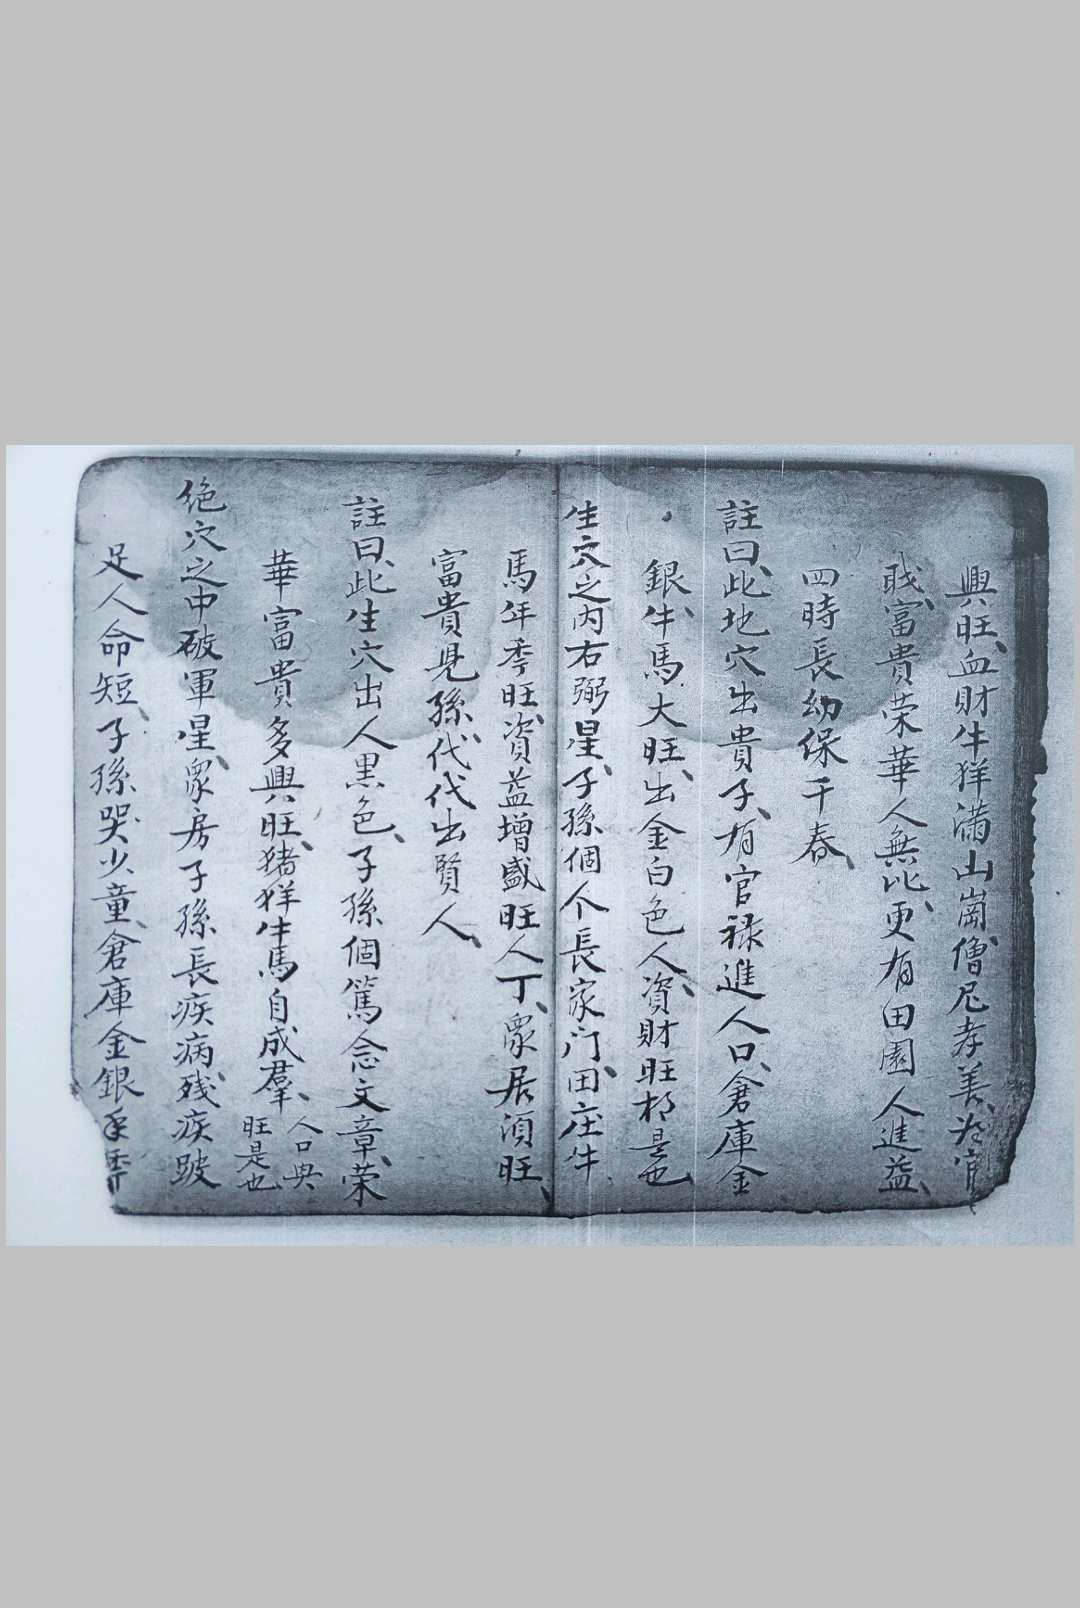 興旺、血財牛羊滿山崗、僧尼孝善、為官
職、富貴荣華人無比、更有田園人進益、
四時長幼保千春、
註曰、此地穴出貴子、有官禄進人口、倉庫金
銀、牛馬大旺、出金白色人、資財旺相是也
生穴之内右弼星、子孫個个長家门、田庄牛
馬年季旺、資益增盛旺人丁、衆居須旺、
富貴見孫、代代出賢人、
註曰、此生穴出人黒色、子孫個篤念文章、荣
華富貴多興旺、猪羊牛馬自成羣、人口興
旺是也
绝穴之中破軍星、衆房子孫長疾病、残疾跛
足人命短、子孫哭少童、倉庫金銀年季